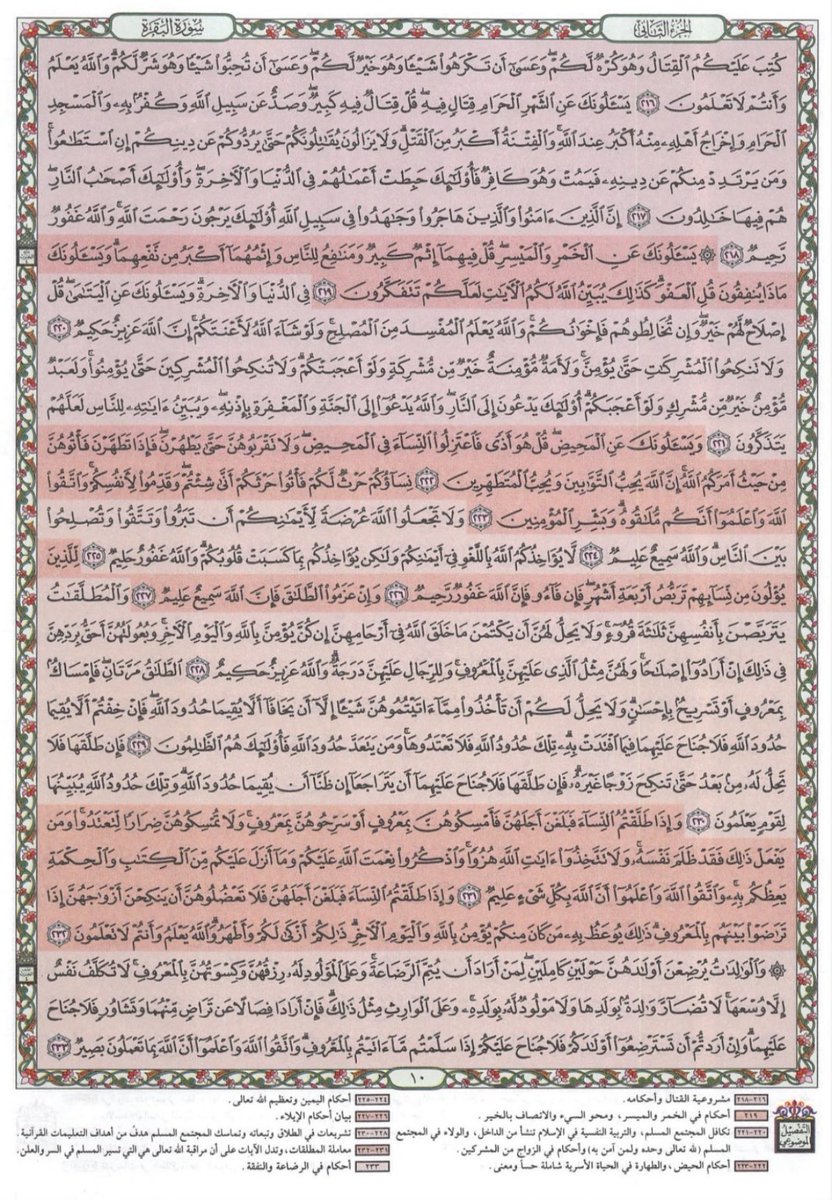 الجزء الثاني
سورة البقرة
كُتِبَ عَلَيْكُمُ الْقِتَالُ وَهُوَ كُرْهٌ لَّكُمْ ۖ وَعَسَىٰ أَن تَكْرَهُوا شَيْئًا وَهُوَ خَيْرٌ لَّكُمْ ۖ وَعَسَىٰ أَن تُحِبُّوا شَيْئًا وَهُوَ شَرٌّ لَّكُمْ ۗ وَاللَّهُ يَعْلَمُ
وَأَنتُمْ لَا تَعْلَمُونَ ٢١٦ يَسْـَٔلُونَكَ عَنِ الشَّهْرِ الْحَرَامِ قِتَالٍ فِيهِ ۖ قُلْ قِتَالٌ فِيهِ كَبِيرٌ ۖ وَصَدٌّ عَن سَبِيلِ اللَّهِ وَكُفْرٌ بِهِ وَالْمَسْجِدِ
الْحَرَامِ وَإِخْرَاجُ أَهْلِهِ مِنْهُ أَكْبَرُ عِندَ اللَّهِ ۚ وَالْفِتْنَةُ أَكْبَرُ مِنَ الْقَتْلِ ۗ وَلَا يَزَالُونَ يُقَاتِلُونَكُمْ حَتَّىٰ يَرُدُّوكُمْ عَن دِينِكُمْ إِنِ اسْتَطَاعُوا ۚ
وَمَن يَرْتَدِدْ مِنكُمْ عَن دِينِهِ فَيَمُتْ وَهُوَ كَافِرٌ فَأُولَٰئِكَ حَبِطَتْ أَعْمَالُهُمْ فِي الدُّنْيَا وَالْآخِرَةِ ۖ وَأُولَٰئِكَ أَصْحَابُ النَّارِ ۖ
هُمْ فِيهَا خَالِدُونَ ٢١٧ إِنَّ الَّذِينَ ءَامَنُوا وَالَّذِينَ هَاجَرُوا وَجَاهَدُوا فِي سَبِيلِ اللَّهِ أُولَٰئِكَ يَرْجُونَ رَحْمَتَ اللَّهِ ۚ وَاللَّهُ غَفُورٌ
رَّحِيمٌ ٢١٨ ۞ يَسْـَٔلُونَكَ عَنِ الْخَمْرِ وَالْمَيْسِرِ ۖ قُلْ فِيهِمَا إِثْمٌ كَبِيرٌ وَمَنَافِعُ لِلنَّاسِ وَإِثْمُهُمَا أَكْبَرُ مِن نَّفْعِهِمَا ۗ وَيَسْـَٔلُونَكَ
مَاذَا يُنفِقُونَ قُلِ الْعَفْوَ ۗ كَذَٰلِكَ يُبَيِّنُ اللَّهُ لَكُمُ الْآيَاتِ لَعَلَّكُمْ تَتَفَكَّرُونَ ٢١٩ فِي الدُّنْيَا وَالْآخِرَةِ ۗ وَيَسْـَٔلُونَكَ عَنِ الْيَتَامَىٰ ۖ قُلْ
إِصْلَاحٌ لَّهُمْ خَيْرٌ ۖ وَإِن تُخَالِطُوهُمْ فَإِخْوَانُكُمْ ۚ وَاللَّهُ يَعْلَمُ الْمُفْسِدَ مِنَ الْمُصْلِحِ ۚ وَلَوْ شَاءَ اللَّهُ لَأَعْنَتَكُمْ ۚ إِنَّ اللَّهَ عَزِيزٌ حَكِيمٌ ٢٢٠
وَلَا تَنكِحُوا الْمُشْرِكَاتِ حَتَّىٰ يُؤْمِنَّ ۚ وَلَأَمَةٌ مُّؤْمِنَةٌ خَيْرٌ مِّن مُّشْرِكَةٍ وَلَوْ أَعْجَبَتْكُمْ ۗ وَلَا تُنكِحُوا الْمُشْرِكِينَ حَتَّىٰ يُؤْمِنُوا ۚ وَلَعَبْدٌ
مُّؤْمِنٌ خَيْرٌ مِّن مُّشْرِكٍ وَلَوْ أَعْجَبَكُمْ ۗ أُولَٰئِكَ يَدْعُونَ إِلَى النَّارِ ۖ وَاللَّهُ يَدْعُوا إِلَى الْجَنَّةِ وَالْمَغْفِرَةِ بِإِذْنِهِ ۖ وَيُبَيِّنُ ءَايَاتِهِ لِلنَّاسِ لَعَلَّهُمْ
يَتَذَكَّرُونَ ٢٢١ وَيَسْـَٔلُونَكَ عَنِ الْمَحِيضِ ۖ قُلْ هُوَ أَذًى فَاعْتَزِلُوا النِّسَاءَ فِي الْمَحِيضِ ۖ وَلَا تَقْرَبُوهُنَّ حَتَّىٰ يَطْهُرْنَ ۖ فَإِذَا تَطَهَّرْنَ فَأْتُوهُنَّ
مِنْ حَيْثُ أَمَرَكُمُ اللَّهُ ۚ إِنَّ اللَّهَ يُحِبُّ التَّوَّابِينَ وَيُحِبُّ الْمُتَطَهِّرِينَ ٢٢٢ نِسَاؤُكُمْ حَرْثٌ لَّكُمْ فَأْتُوا حَرْثَكُمْ أَنَّىٰ شِئْتُمْ ۖ وَقَدِّمُوا لِأَنفُسِكُمْ ۚ وَاتَّقُوا
اللَّهَ وَاعْلَمُوا أَنَّكُم مُّلَاقُوهُ ۗ وَبَشِّرِ الْمُؤْمِنِينَ ٢٢٣ وَلَا تَجْعَلُوا اللَّهَ عُرْضَةً لِّأَيْمَانِكُمْ أَن تَبَرُّوا وَتَتَّقُوا وَتُصْلِحُوا
بَيْنَ النَّاسِ ۗ وَاللَّهُ سَمِيعٌ عَلِيمٌ ٢٢٤ لَّا يُؤَاخِذُكُمُ اللَّهُ بِاللَّغْوِ فِي أَيْمَانِكُمْ وَلَٰكِن يُؤَاخِذُكُم بِمَا كَسَبَتْ قُلُوبُكُمْ ۗ وَاللَّهُ غَفُورٌ حَلِيمٌ ٢٢٥ لِّلَّذِينَ
يُؤْلُونَ مِن نِّسَائِهِمْ تَرَبُّصُ أَرْبَعَةِ أَشْهُرٍ ۖ فَإِن فَاءُو فَإِنَّ اللَّهَ غَفُورٌ رَّحِيمٌ ٢٢٦ وَإِنْ عَزَمُوا الطَّلَاقَ فَإِنَّ اللَّهَ سَمِيعٌ عَلِيمٌ ٢٢٧ وَالْمُطَلَّقَاتُ
يَتَرَبَّصْنَ بِأَنفُسِهِنَّ ثَلَاثَةَ قُرُوءٍ ۚ وَلَا يَحِلُّ لَهُنَّ أَن يَكْتُمْنَ مَا خَلَقَ اللَّهُ فِي أَرْحَامِهِنَّ إِن كُنَّ يُؤْمِنَّ بِاللَّهِ وَالْيَوْمِ الْآخِرِ ۚ وَبُعُولَتُهُنَّ أَحَقُّ بِرَدِّهِنَّ
فِي ذَٰلِكَ إِنْ أَرَادُوا إِصْلَاحًا ۚ وَلَهُنَّ مِثْلُ الَّذِي عَلَيْهِنَّ بِالْمَعْرُوفِ ۚ وَلِلرِّجَالِ عَلَيْهِنَّ دَرَجَةٌ ۗ وَاللَّهُ عَزِيزٌ حَكِيمٌ ٢٢٨ الطَّلَاقُ مَرَّتَانِ ۖ فَإِمْسَاكٌ
بِمَعْرُوفٍ أَوْ تَسْرِيحٌ بِإِحْسَانٍ ۗ وَلَا يَحِلُّ لَكُمْ أَن تَأْخُذُوا مِمَّا ءَاتَيْتُمُوهُنَّ شَيْئًا إِلَّا أَن يَخَافَا أَلَّا يُقِيمَا حُدُودَ اللَّهِ ۖ فَإِنْ خِفْتُمْ أَلَّا يُقِيمَا
حُدُودَ اللَّهِ فَلَا جُنَاحَ عَلَيْهِمَا فِيمَا افْتَدَتْ بِهِ ۗ تِلْكَ حُدُودُ اللَّهِ فَلَا تَعْتَدُوهَا ۚ وَمَن يَتَعَدَّ حُدُودَ اللَّهِ فَأُولَٰئِكَ هُمُ الظَّالِمُونَ ٢٢٩ فَإِن طَلَّقَهَا فَلَا
تَحِلُّ لَهُ مِن بَعْدُ حَتَّىٰ تَنكِحَ زَوْجًا غَيْرَهُ ۗ فَإِن طَلَّقَهَا فَلَا جُنَاحَ عَلَيْهِمَا أَن يَتَرَاجَعَا إِن ظَنَّا أَن يُقِيمَا حُدُودَ اللَّهِ ۗ وَتِلْكَ حُدُودُ اللَّهِ يُبَيِّنُهَا
لِقَوْمٍ يَعْلَمُونَ ٢٣٠ وَإِذَا طَلَّقْتُمُ النِّسَاءَ فَبَلَغْنَ أَجَلَهُنَّ فَأَمْسِكُوهُنَّ بِمَعْرُوفٍ أَوْ سَرِّحُوهُنَّ بِمَعْرُوفٍ ۚ وَلَا تُمْسِكُوهُنَّ ضِرَارًا لِّتَعْتَدُوا ۚ وَمَن
يَفْعَلْ ذَٰلِكَ فَقَدْ ظَلَمَ نَفْسَهُ ۚ وَلَا تَتَّخِذُوا ءَايَاتِ اللَّهِ هُزُوًا ۚ وَاذْكُرُوا نِعْمَتَ اللَّهِ عَلَيْكُمْ وَمَا أَنزَلَ عَلَيْكُم مِّنَ الْكِتَابِ وَالْحِكْمَةِ
يَعِظُكُم بِهِ ۚ وَاتَّقُوا اللَّهَ وَاعْلَمُوا أَنَّ اللَّهَ بِكُلِّ شَيْءٍ عَلِيمٌ ٢٣١ وَإِذَا طَلَّقْتُمُ النِّسَاءَ فَبَلَغْنَ أَجَلَهُنَّ فَلَا تَعْضُلُوهُنَّ أَن يَنكِحْنَ أَزْوَاجَهُنَّ إِذَا
تَرَاضَوْا بَيْنَهُم بِالْمَعْرُوفِ ۗ ذَٰلِكَ يُوعَظُ بِهِ مَن كَانَ مِنكُمْ يُؤْمِنُ بِاللَّهِ وَالْيَوْمِ الْآخِرِ ۗ ذَٰلِكُمْ أَزْكَىٰ لَكُمْ وَأَطْهَرُ ۗ وَاللَّهُ يَعْلَمُ وَأَنتُمْ لَا تَعْلَمُونَ ٢٣٢
۞ وَالْوَالِدَاتُ يُرْضِعْنَ أَوْلَادَهُنَّ حَوْلَيْنِ كَامِلَيْنِ ۖ لِمَنْ أَرَادَ أَن يُتِمَّ الرَّضَاعَةَ ۚ وَعَلَى الْمَوْلُودِ لَهُ رِزْقُهُنَّ وَكِسْوَتُهُنَّ بِالْمَعْرُوفِ ۚ لَا تُكَلَّفُ نَفْسٌ
إِلَّا وُسْعَهَا ۚ لَا تُضَارَّ وَالِدَةٌ بِوَلَدِهَا وَلَا مَوْلُودٌ لَّهُ بِوَلَدِهِ ۚ وَعَلَى الْوَارِثِ مِثْلُ ذَٰلِكَ ۗ فَإِنْ أَرَادَا فِصَالًا عَن تَرَاضٍ مِّنْهُمَا وَتَشَاوُرٍ فَلَا جُنَاحَ
عَلَيْهِمَا ۗ وَإِنْ أَرَدتُّمْ أَن تَسْتَرْضِعُوا أَوْلَادَكُمْ فَلَا جُنَاحَ عَلَيْكُمْ إِذَا سَلَّمْتُم مَّا ءَاتَيْتُم بِالْمَعْرُوفِ ۗ وَاتَّقُوا اللَّهَ وَاعْلَمُوا أَنَّ اللَّهَ بِمَا تَعْمَلُونَ بَصِيرٌ ٢٣٣
١٠
التفصيل الموضوعي
٢١٦-٢١٨ مشروعية القتال وأحكامه.
٢١٩ أحكام في الخمر والميسر، ومحو السيء والاتصاف بالخير.
٢٢٠-٢٢١ تكافل المجتمع المسلم، والتربية النفسية في الإسلام تنشأ من الداخل، والولاء في المجتمع
المسلم (لله تعالى وحده ولمن آمن به) وأحكام في الزواج من المشركين.
٢٢٢-٢٢٣ أحكام الحيض، والطهارة في الحياة الأسرية شاملة حساً ومعنى.
٢٢٤-٢٢٥ أحكام اليمين وتعظيم الله تعالى.
٢٢٦-٢٢٧ بيان أحكام الإيلاء.
٢٢٨-٢٣٠ تشريعات في الطلاق وتبعاته وتماسك المجتمع المسلم هدفٌ من أهداف التعليمات القرآنية.
٢٣١-٢٣٢ معاملة المطلقات، وتدل الآيات على أن مراقبة الله تعالى هي التي تسير المسلم في السر والعلن.
٢٣٣ أحكام في الرضاعة والنفقة.